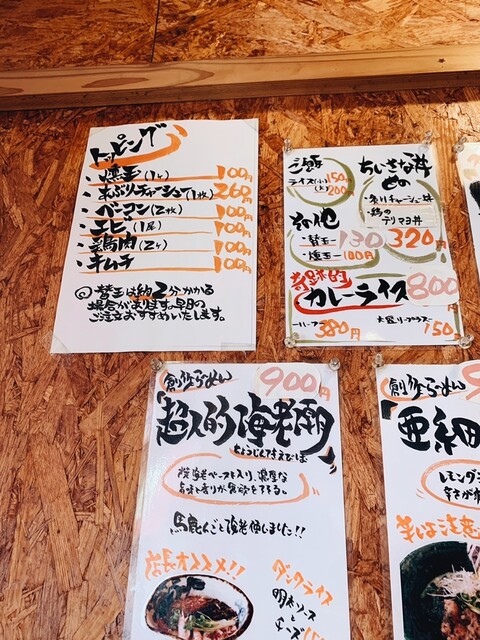 トッピング
・燻玉(1ヶ) 100円
・炙りチャーシュー(1枚) 260円
・ベーコン(2枚) 100円
・エビ(1尾) 100円
・鶏肉(2ヶ) 100円
・キムチ 100円
◎替玉は約2分かかる
場合があります。早目の
ご注文おすすめいたします。
ご飯
ライス(小) 150円
(大) 200円
その他
・替玉 130円
・燻玉 100円
ちいさな丼
・炙りチャーシュー丼
・鶏の
テリマヨ丼
320円
奇跡的
カレーライス 800円
ハーフ 380円
大盛りプラス 150円
創作らーめん 900円
「超人的海老潮」
ちょうじんてきえびしぼ
特海老ペースト入り、濃厚な
旨味と香りが食欲をそそる。
馬鹿んごと海老推しました!!
店長オススメ!!
ダンクライス
明太ソース
と
チーズ
創作らーめん
「亜細
レモング
辛さが
辛いは注意